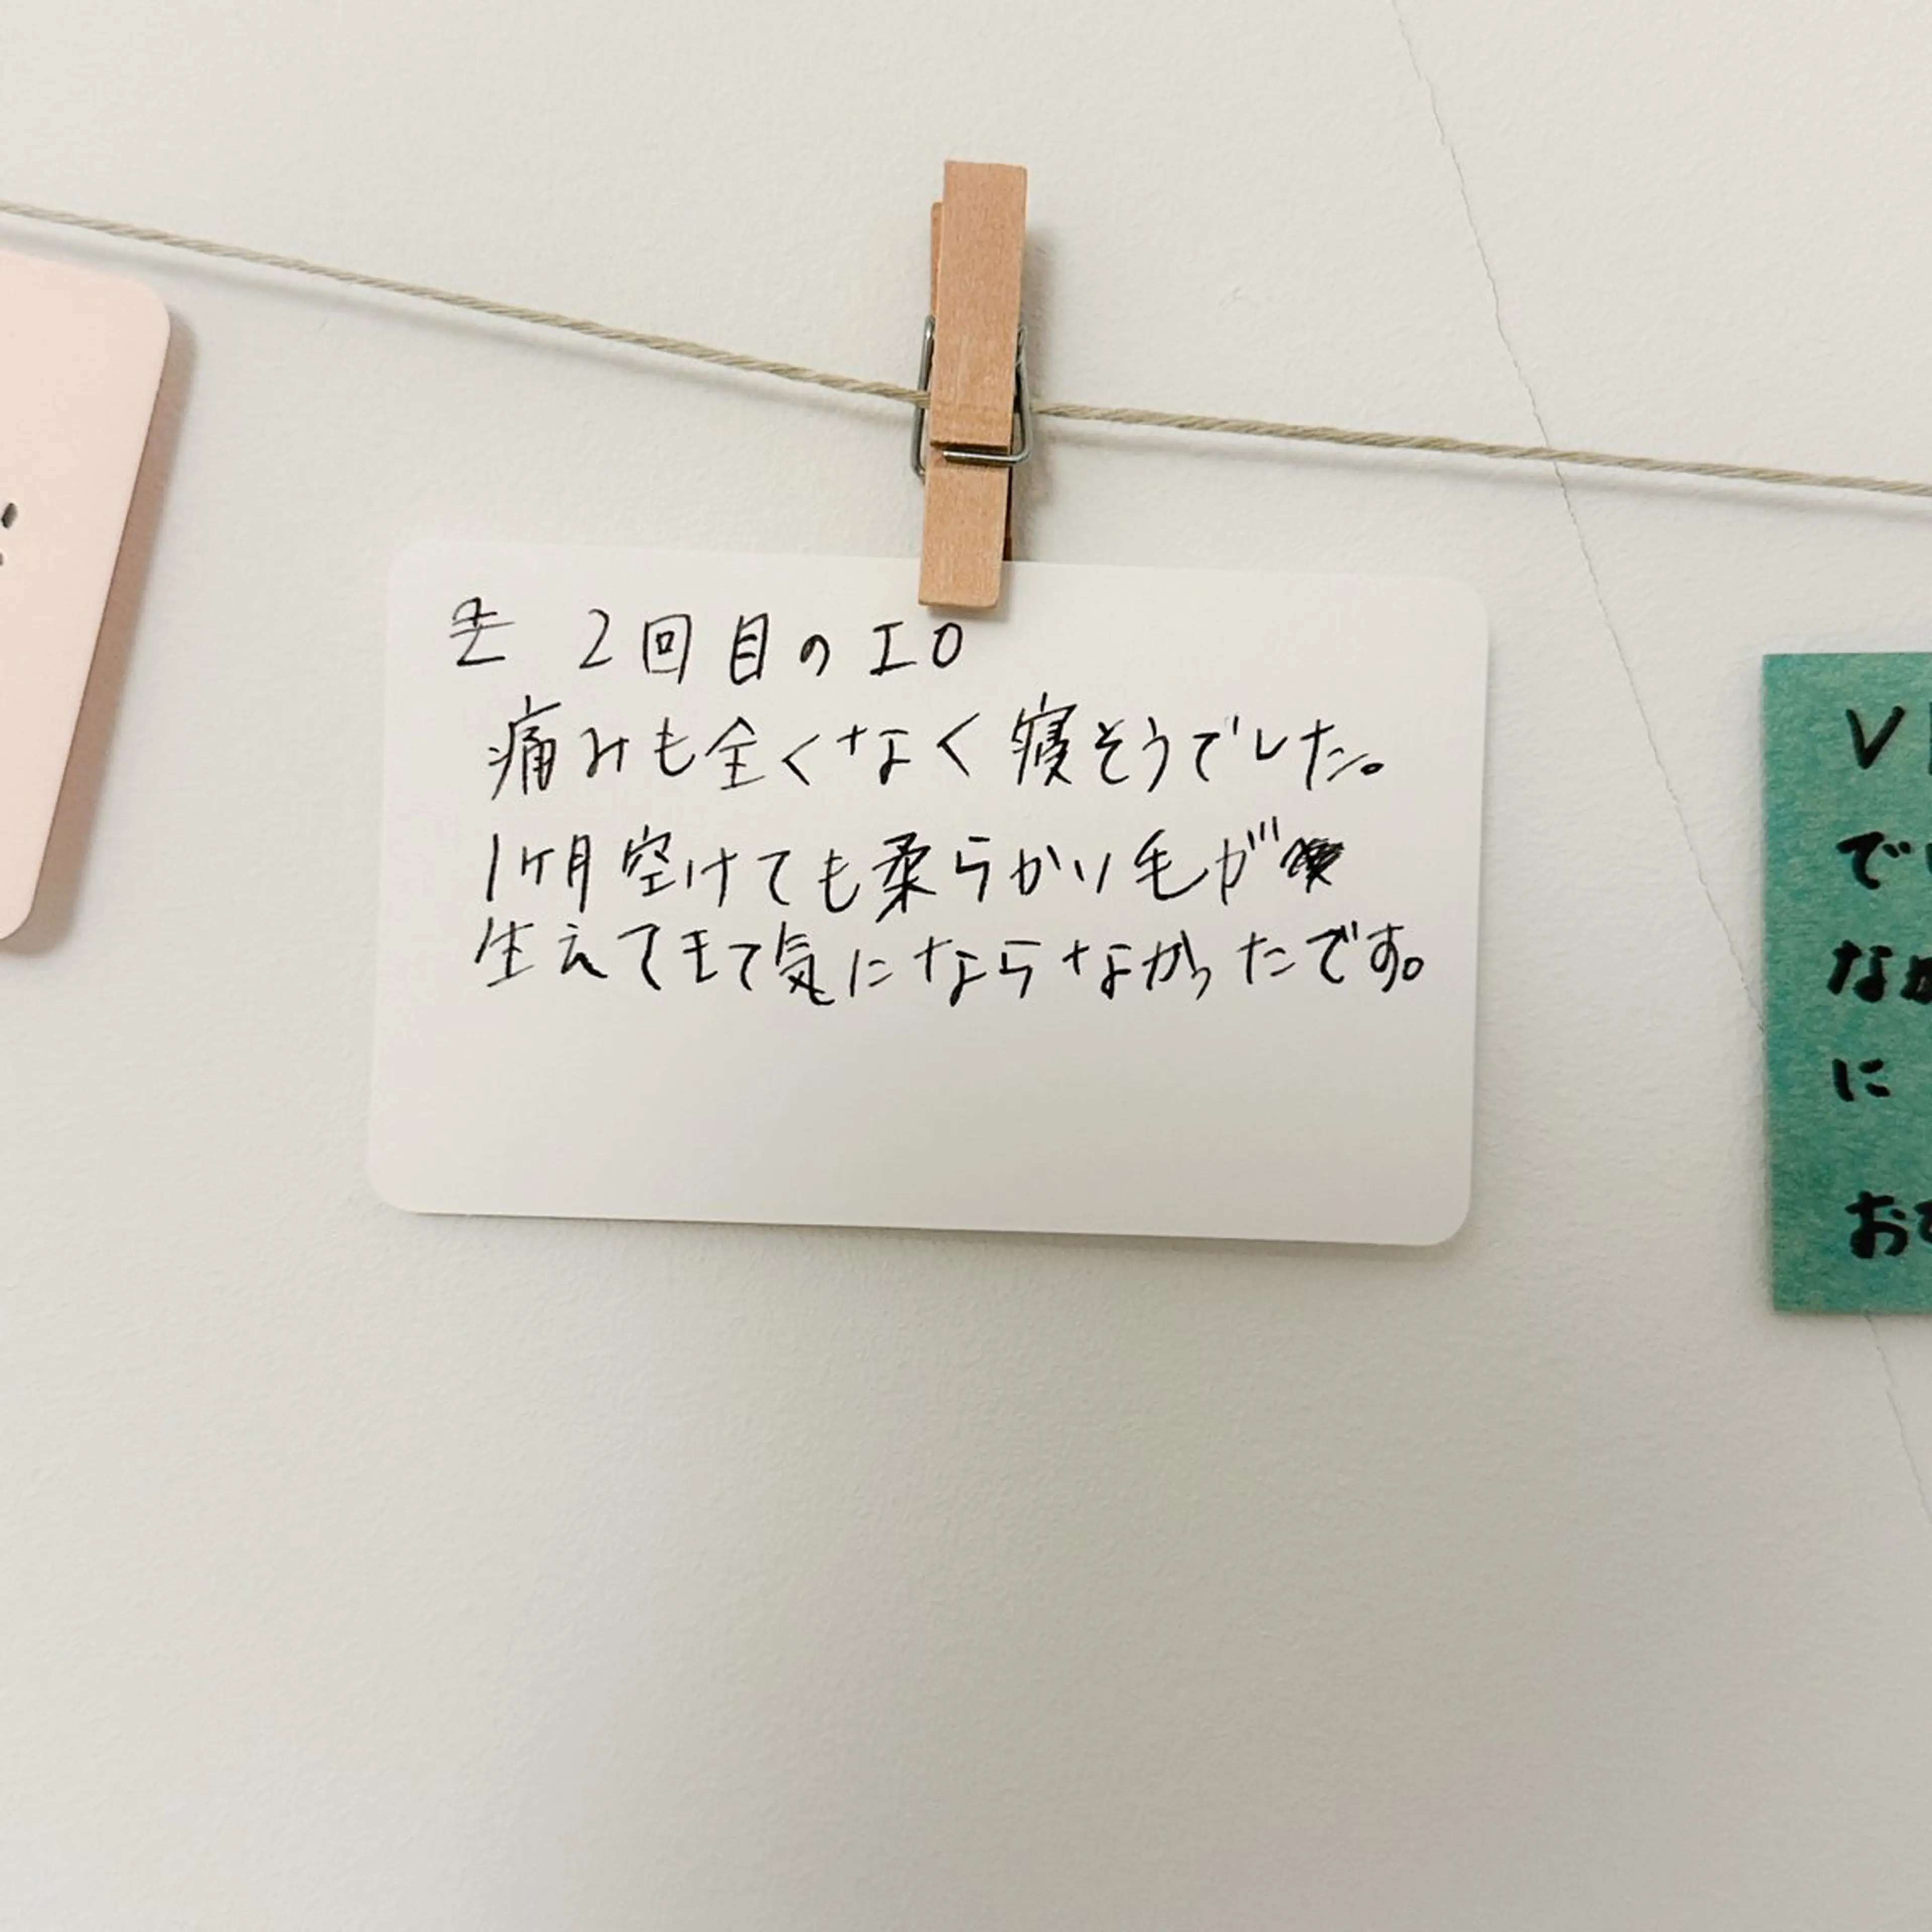 2回目のIO
痛みも全くなく寝そうでした。
1ヶ月空けても柔らかい毛が
生えてきて気にならなかったです。
V
で
なか
に
お